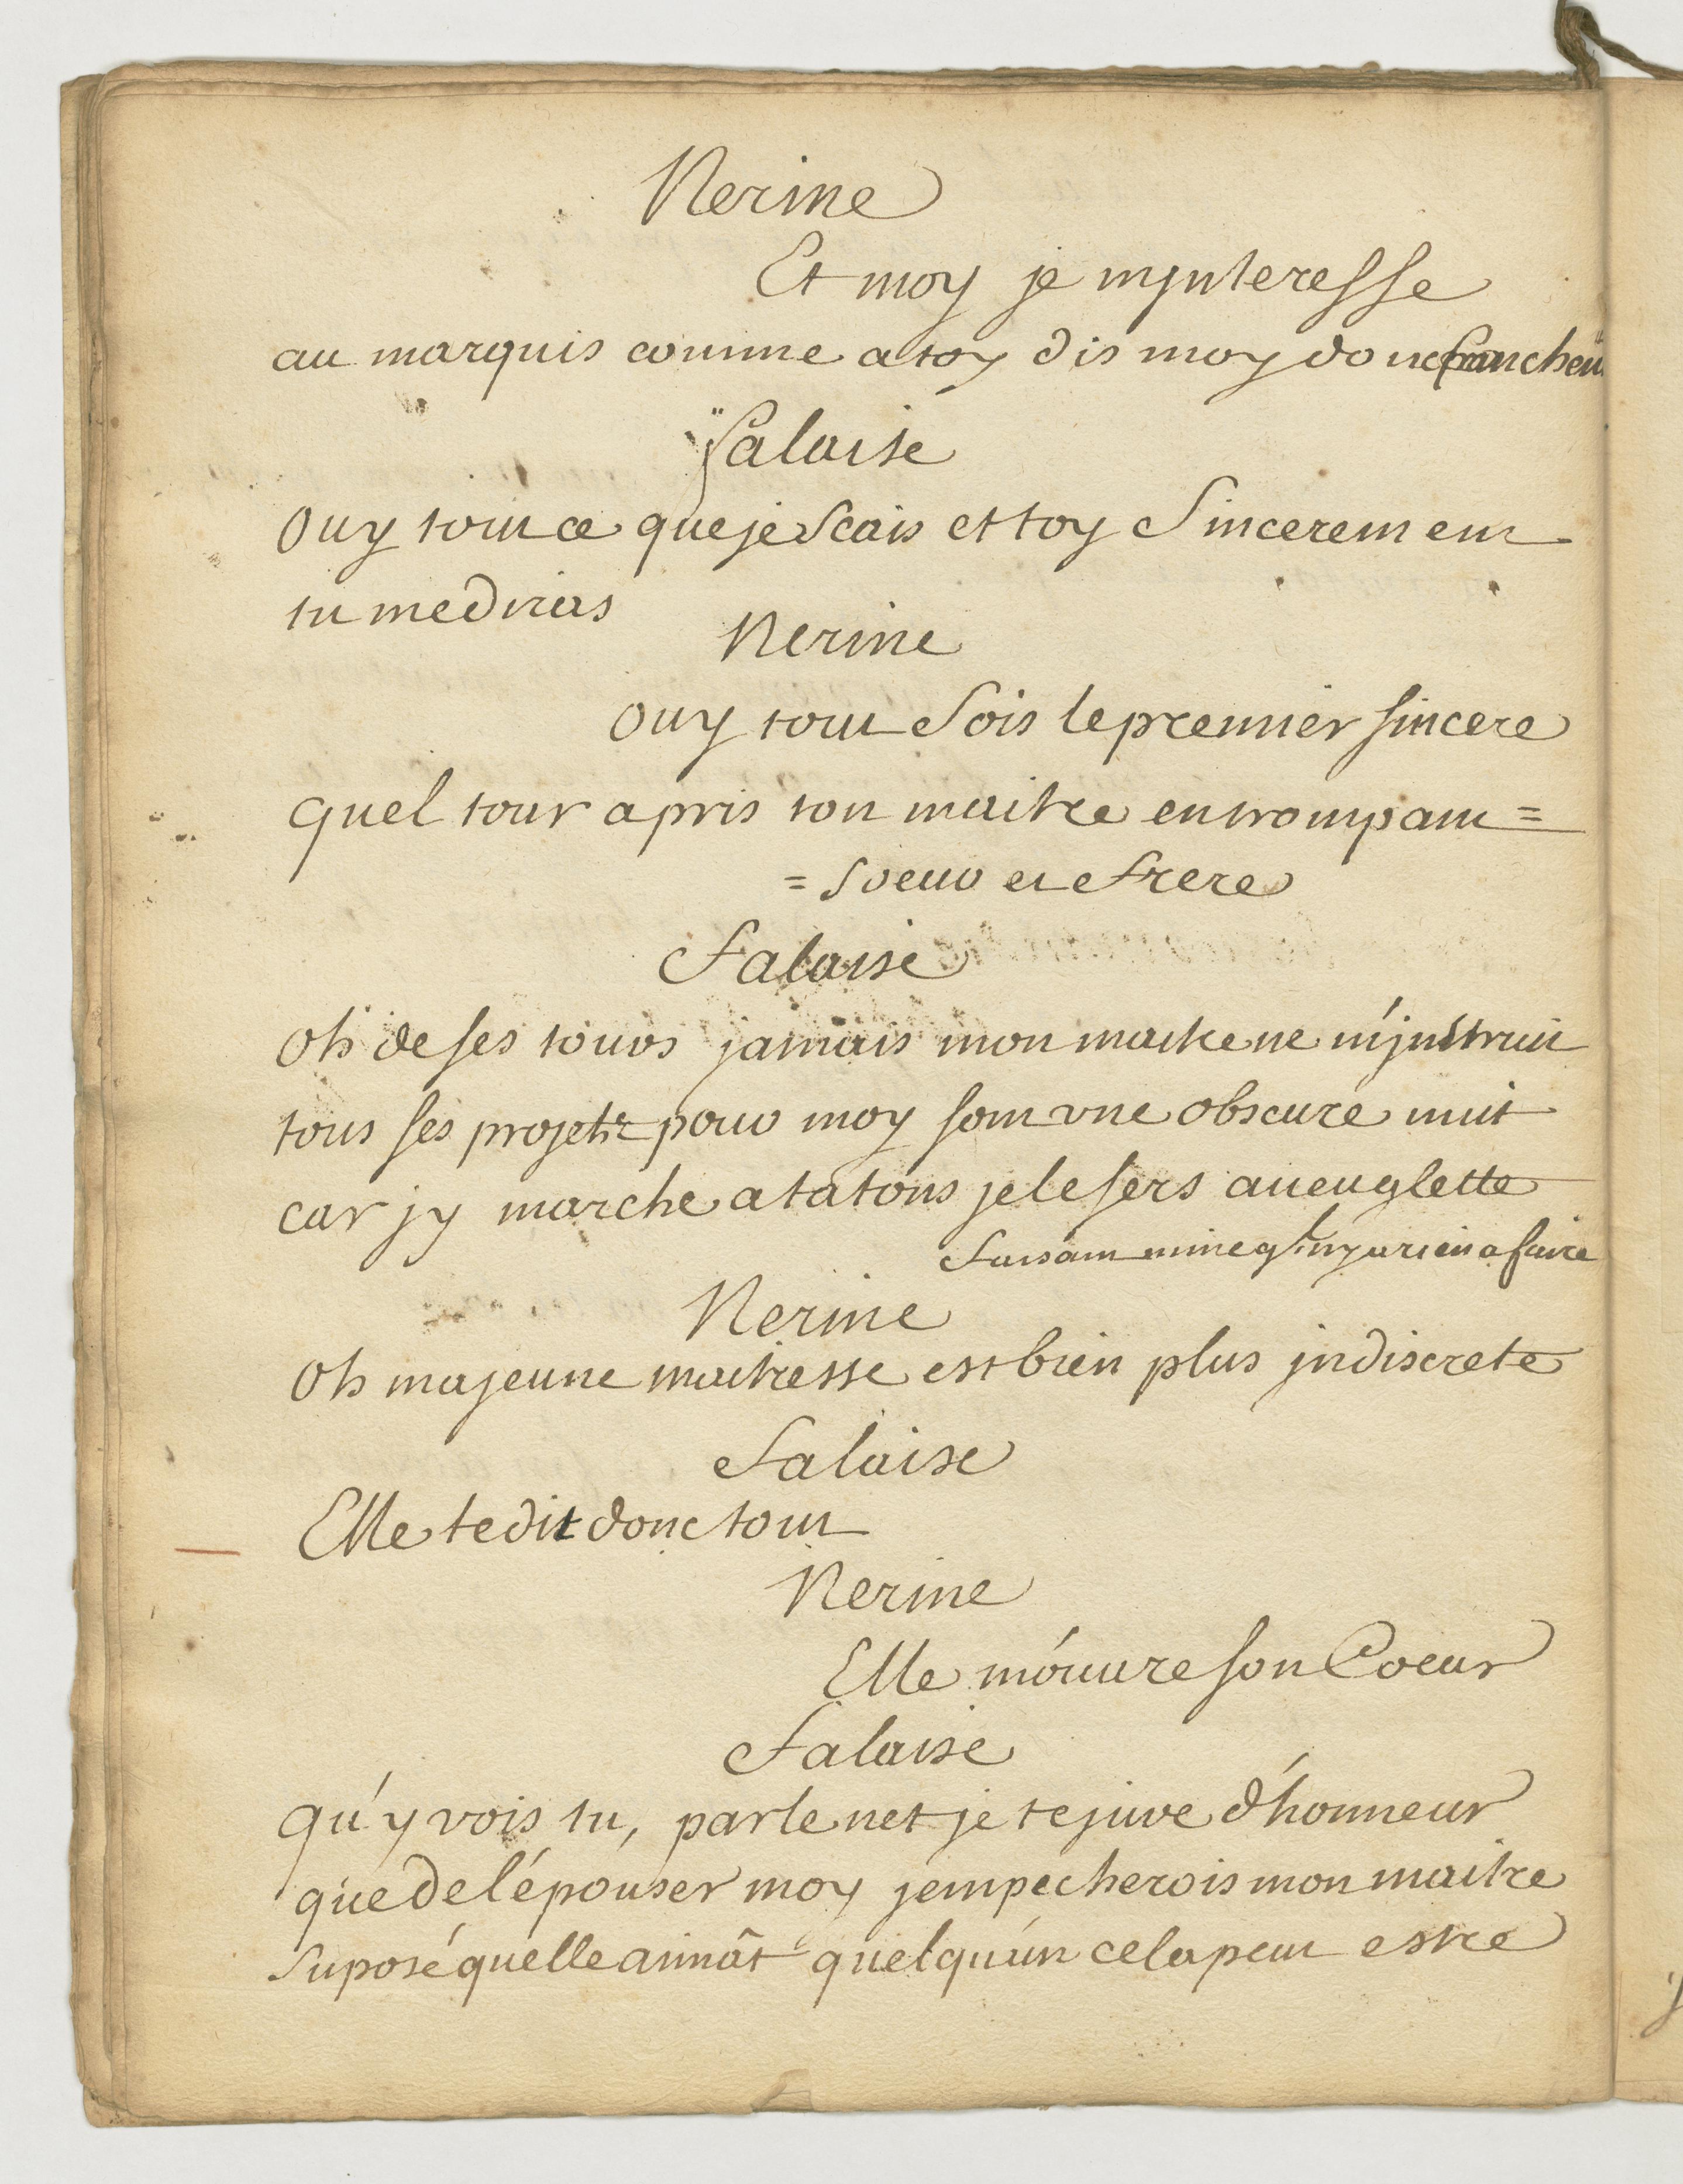 Nerine
Et moy je mjnteresse
au marquis comme a toy dis moy donc franchem
falaise
Ouy tout ce que je scais et toy sincerement
tu me diras
Nerine
Ouy tout sois le premier sincere
quel tour a pris ton maitre en trompant =
= soeur et frere
falaise
Oh de ses tours jamais mon maitre ne m'jnstruit
tous ses projets pour moy sont vne obscure nuit
car jy marche a tatons je le sers aueuglette
faisant mine qu'il ny a rien a faire
Nerine
Oh ma jeune maitresse est bien plus jndiscrete
falaise
Elle te dit donc tout
Nerine
Elle m'ouure son Coeur
falaise
qu'y vois tu, parle net je te jure d'honneur
que de l'épouser moy jempecherois mon maitre
suposé quelle aimât quelqu'ún cela peut estre